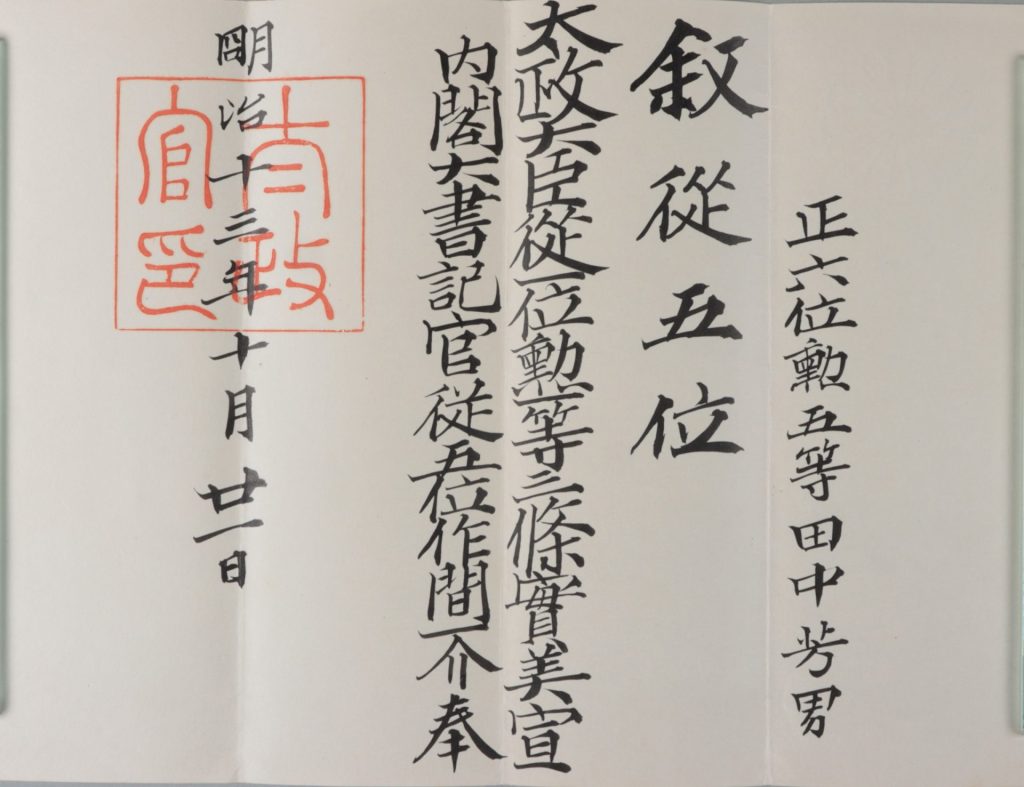 正六位勲五等田中芳男
叙從五位
太政大臣從一位勲一等三條實美宣
内閣大書記官從五位作間一介奉
明治十三年十月廿一日
太政官印